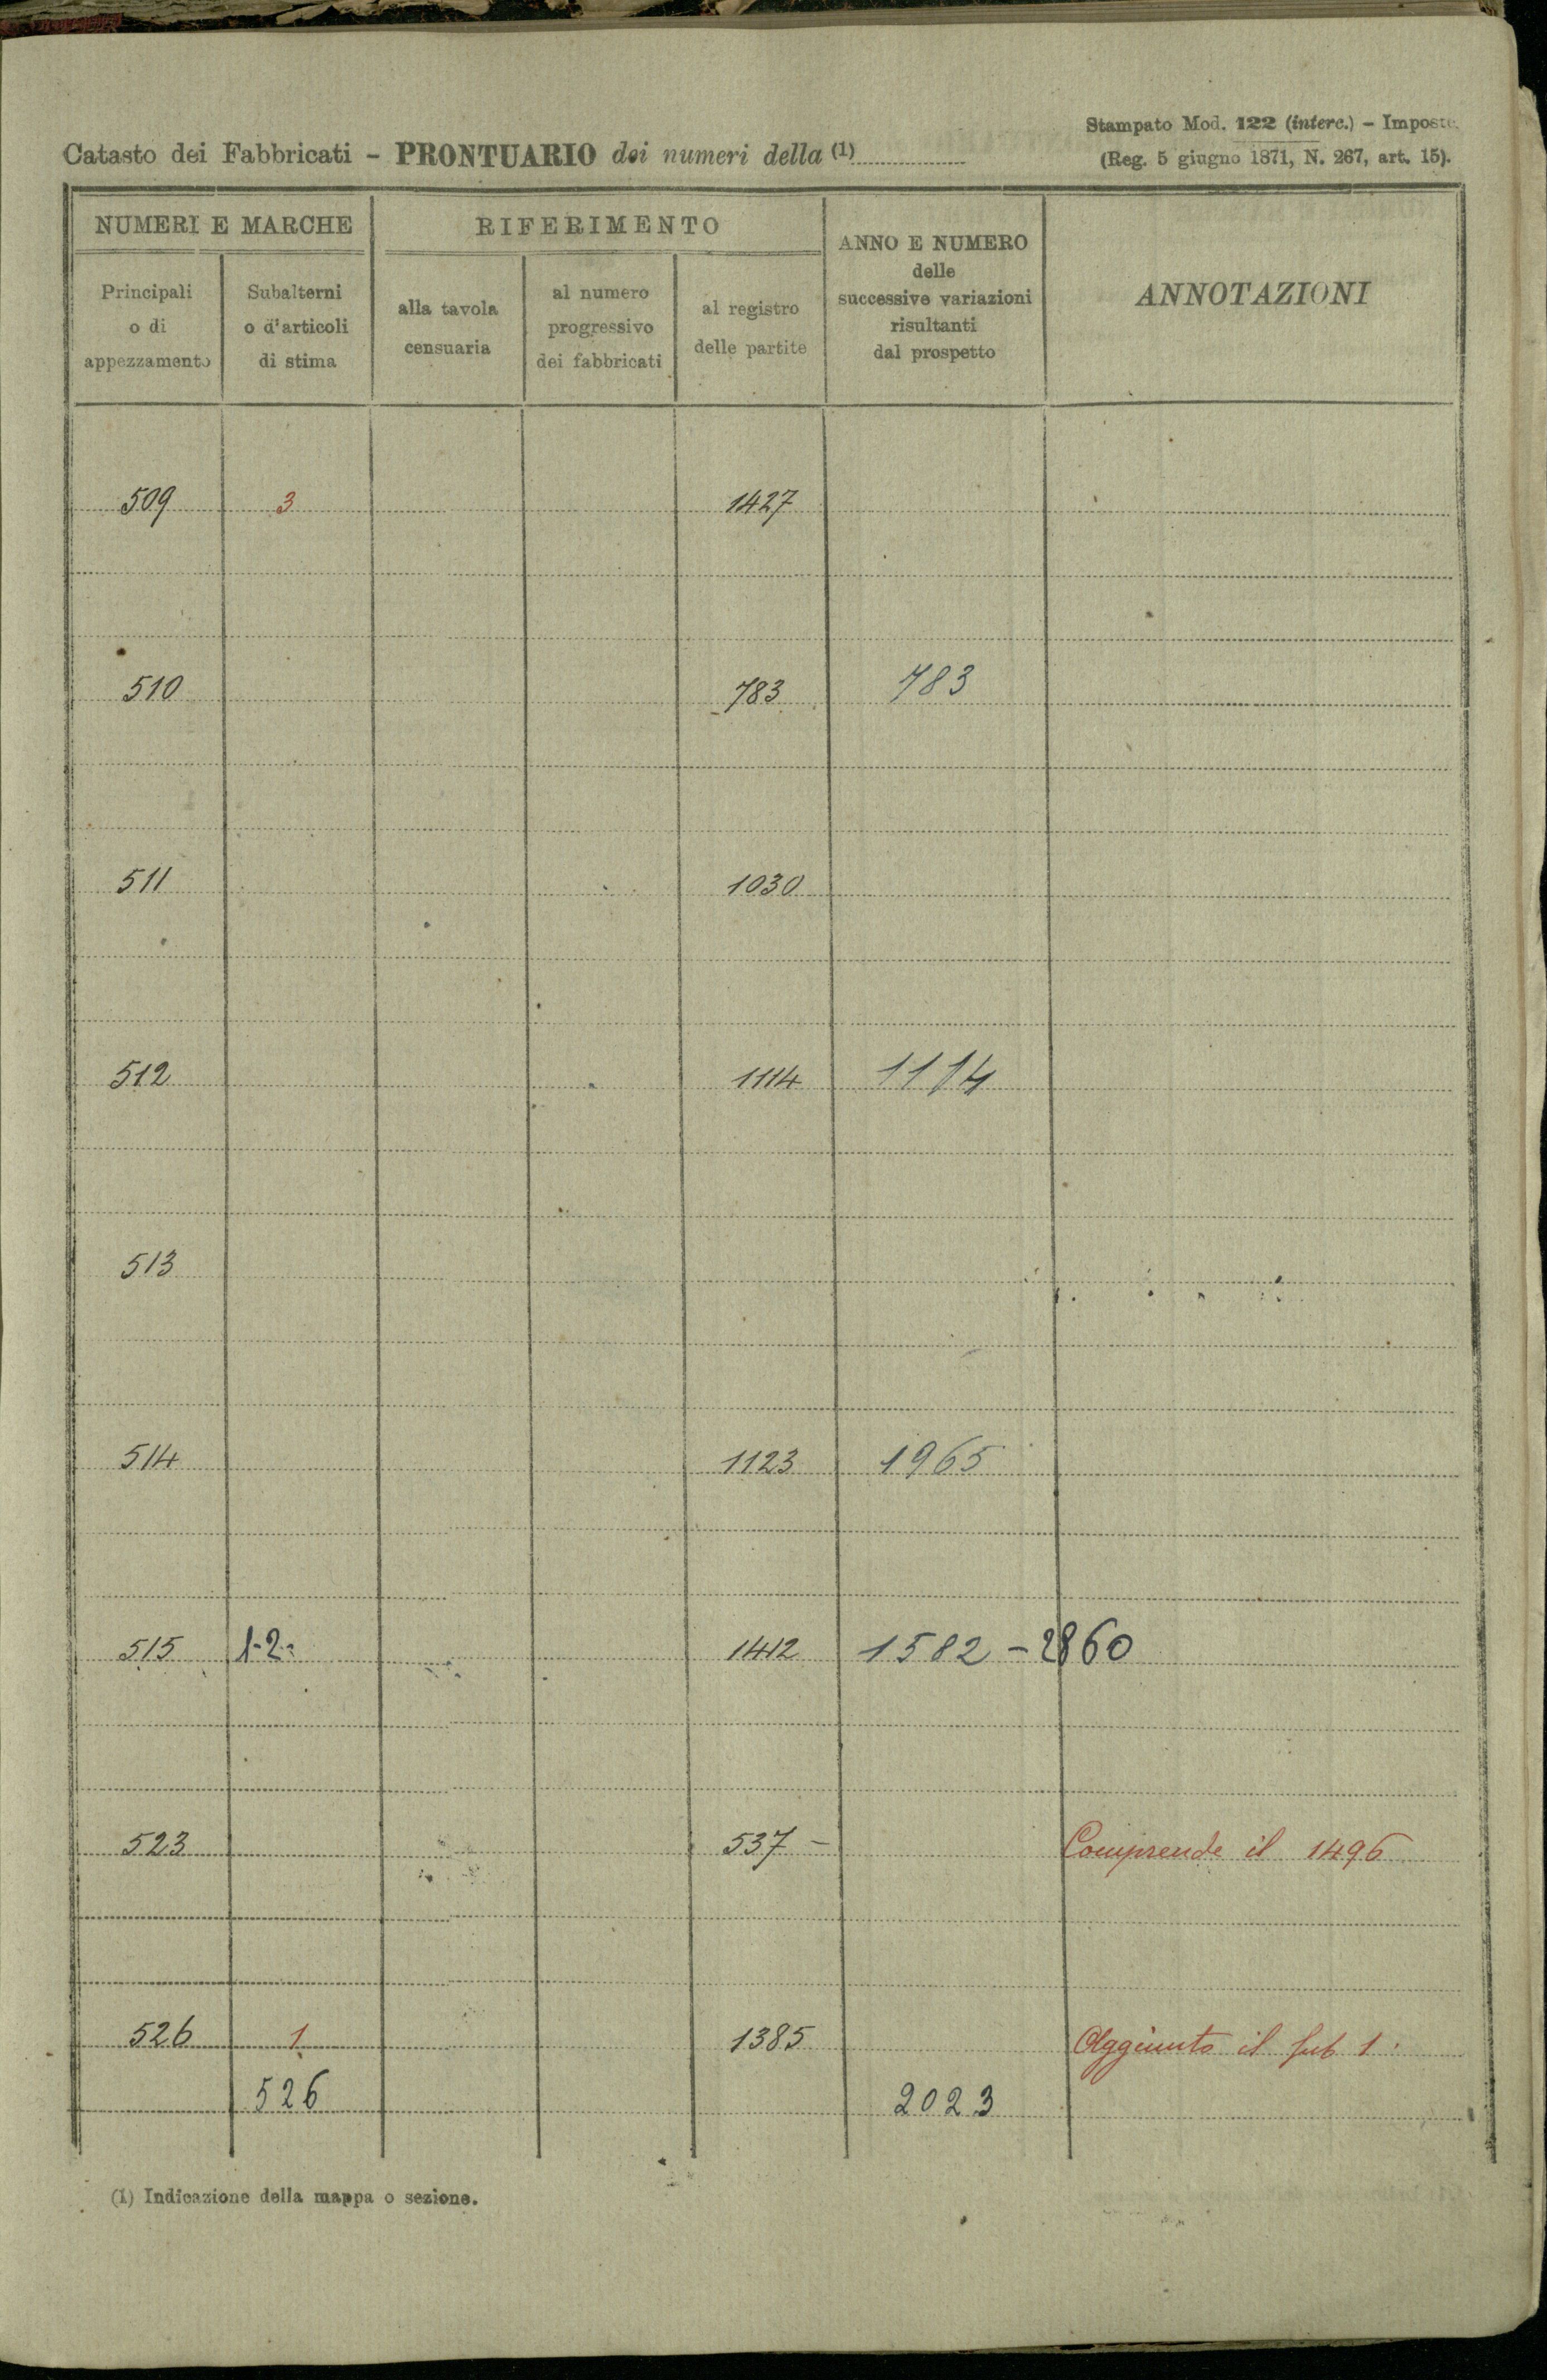 Stampato Mod. 122 (interc.) - Imposte.
Catasto dei Fabbricati - PRONTUARIO dei numeri della (1)
(Reg. 5 giugno 1871, N. 267, art. 15).
NUMERI E MARCHE
RIFERIMENTO
ANNO E NUMERO
delle
successive variazioni
risultanti
dal prospetto
ANNOTAZIONI
Principali
o di
appezzamento
Subalterni
o d'articoli
di stima
alla tavola
censuaria
al numero
progressivo
dei fabbricati
al registro
delle partite
509 3 1427
510 783 783
511 1030
512 1114 1114
513
514 1123 1965
515 1-2- 1412 1582 - 2860
523 537 - Comprende il 1496
526 1 1385 Aggiunto il sub 1.
526 2023
(1) Indicazione della mappa o sezione.